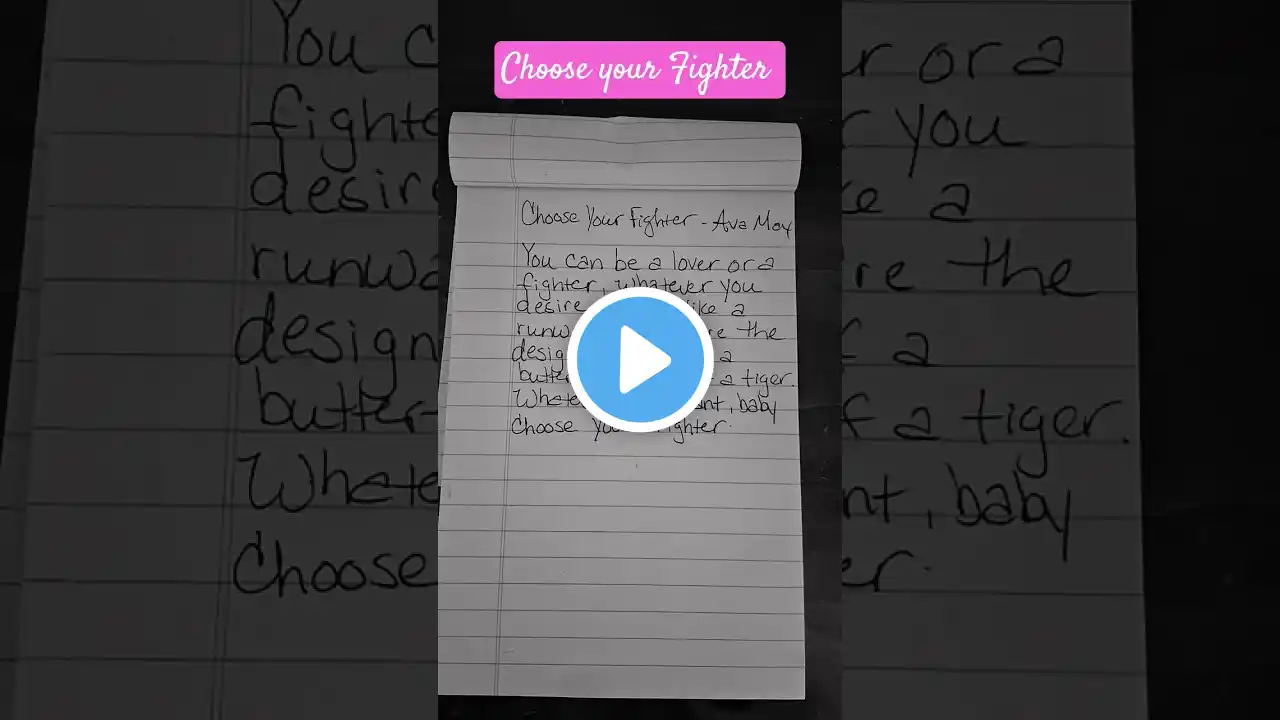 Choose your Fighter
Choose Your Fighter - Ava Max
You can be a lover or a
fighter, whatever you
desire like a
the
a
a tiger.
baby
Choose your fighter.